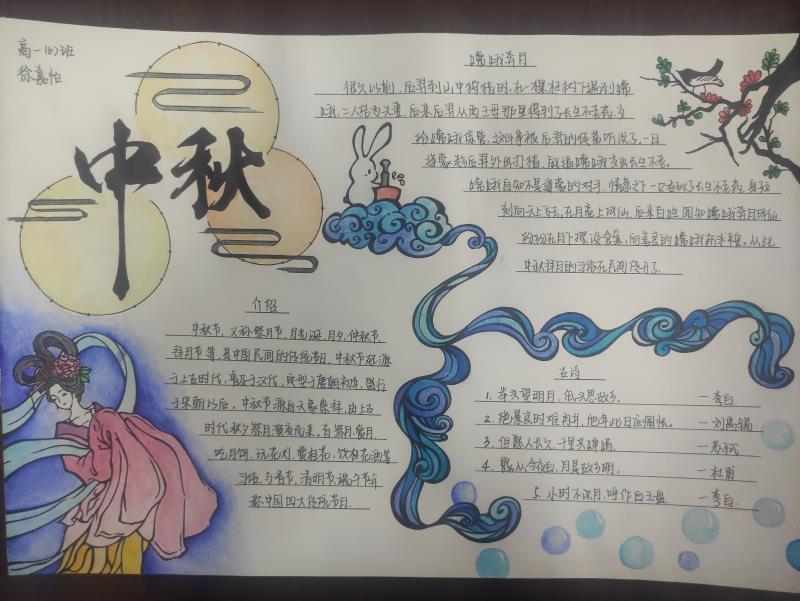 高一163班
徐嘉怡
中秋
嫦娥奔月
很久以前，后羿到山中狩猎时，在一棵桂树下遇到嫦
娥，二人结为夫妻，后来后羿从西王母那里得到了长生不老药，交
给嫦娥保管，这件事被后羿的徒弟听说了。一日
逢蒙趁后羿外出打猎，威逼嫦娥交出长生不老。
嫦娥自知不是逢蒙的对手，情急之下一口吞下了长生不老药，身子立
刻向天上飞去，在月亮上成仙，后来百姓闻知嫦娥奔月成仙
纷纷在月下摆设香案，向善良的嫦娥祈求平安。从此
中秋拜月的习俗在民间传开了.
介绍
中秋节，又称祭月节、月光诞、月夕、仲秋节、
拜月节等，是中国民间的传统节日。中秋节起源
于上古时代，普及于汉代，定型于唐朝初年，盛行
于宋朝以后。中秋节源自天象崇拜，由上古
时代秋夕祭月演变而来。有祭月、赏月、
吃月饼、玩花灯、赏桂花、饮桂花酒等
习俗，与春节、清明节、端午节并
称中国四大传统节日.
古诗
1. 举头望明月，低头思故乡。 —李白
2. 绝景良时难再并，他年此日应惆怅。 —刘禹锡
3. 但愿人长久，千里共婵娟。 —苏轼
4. 露从今夜白，月是故乡明。 —杜甫
5. 小时不识月，呼作白玉盘. —李白